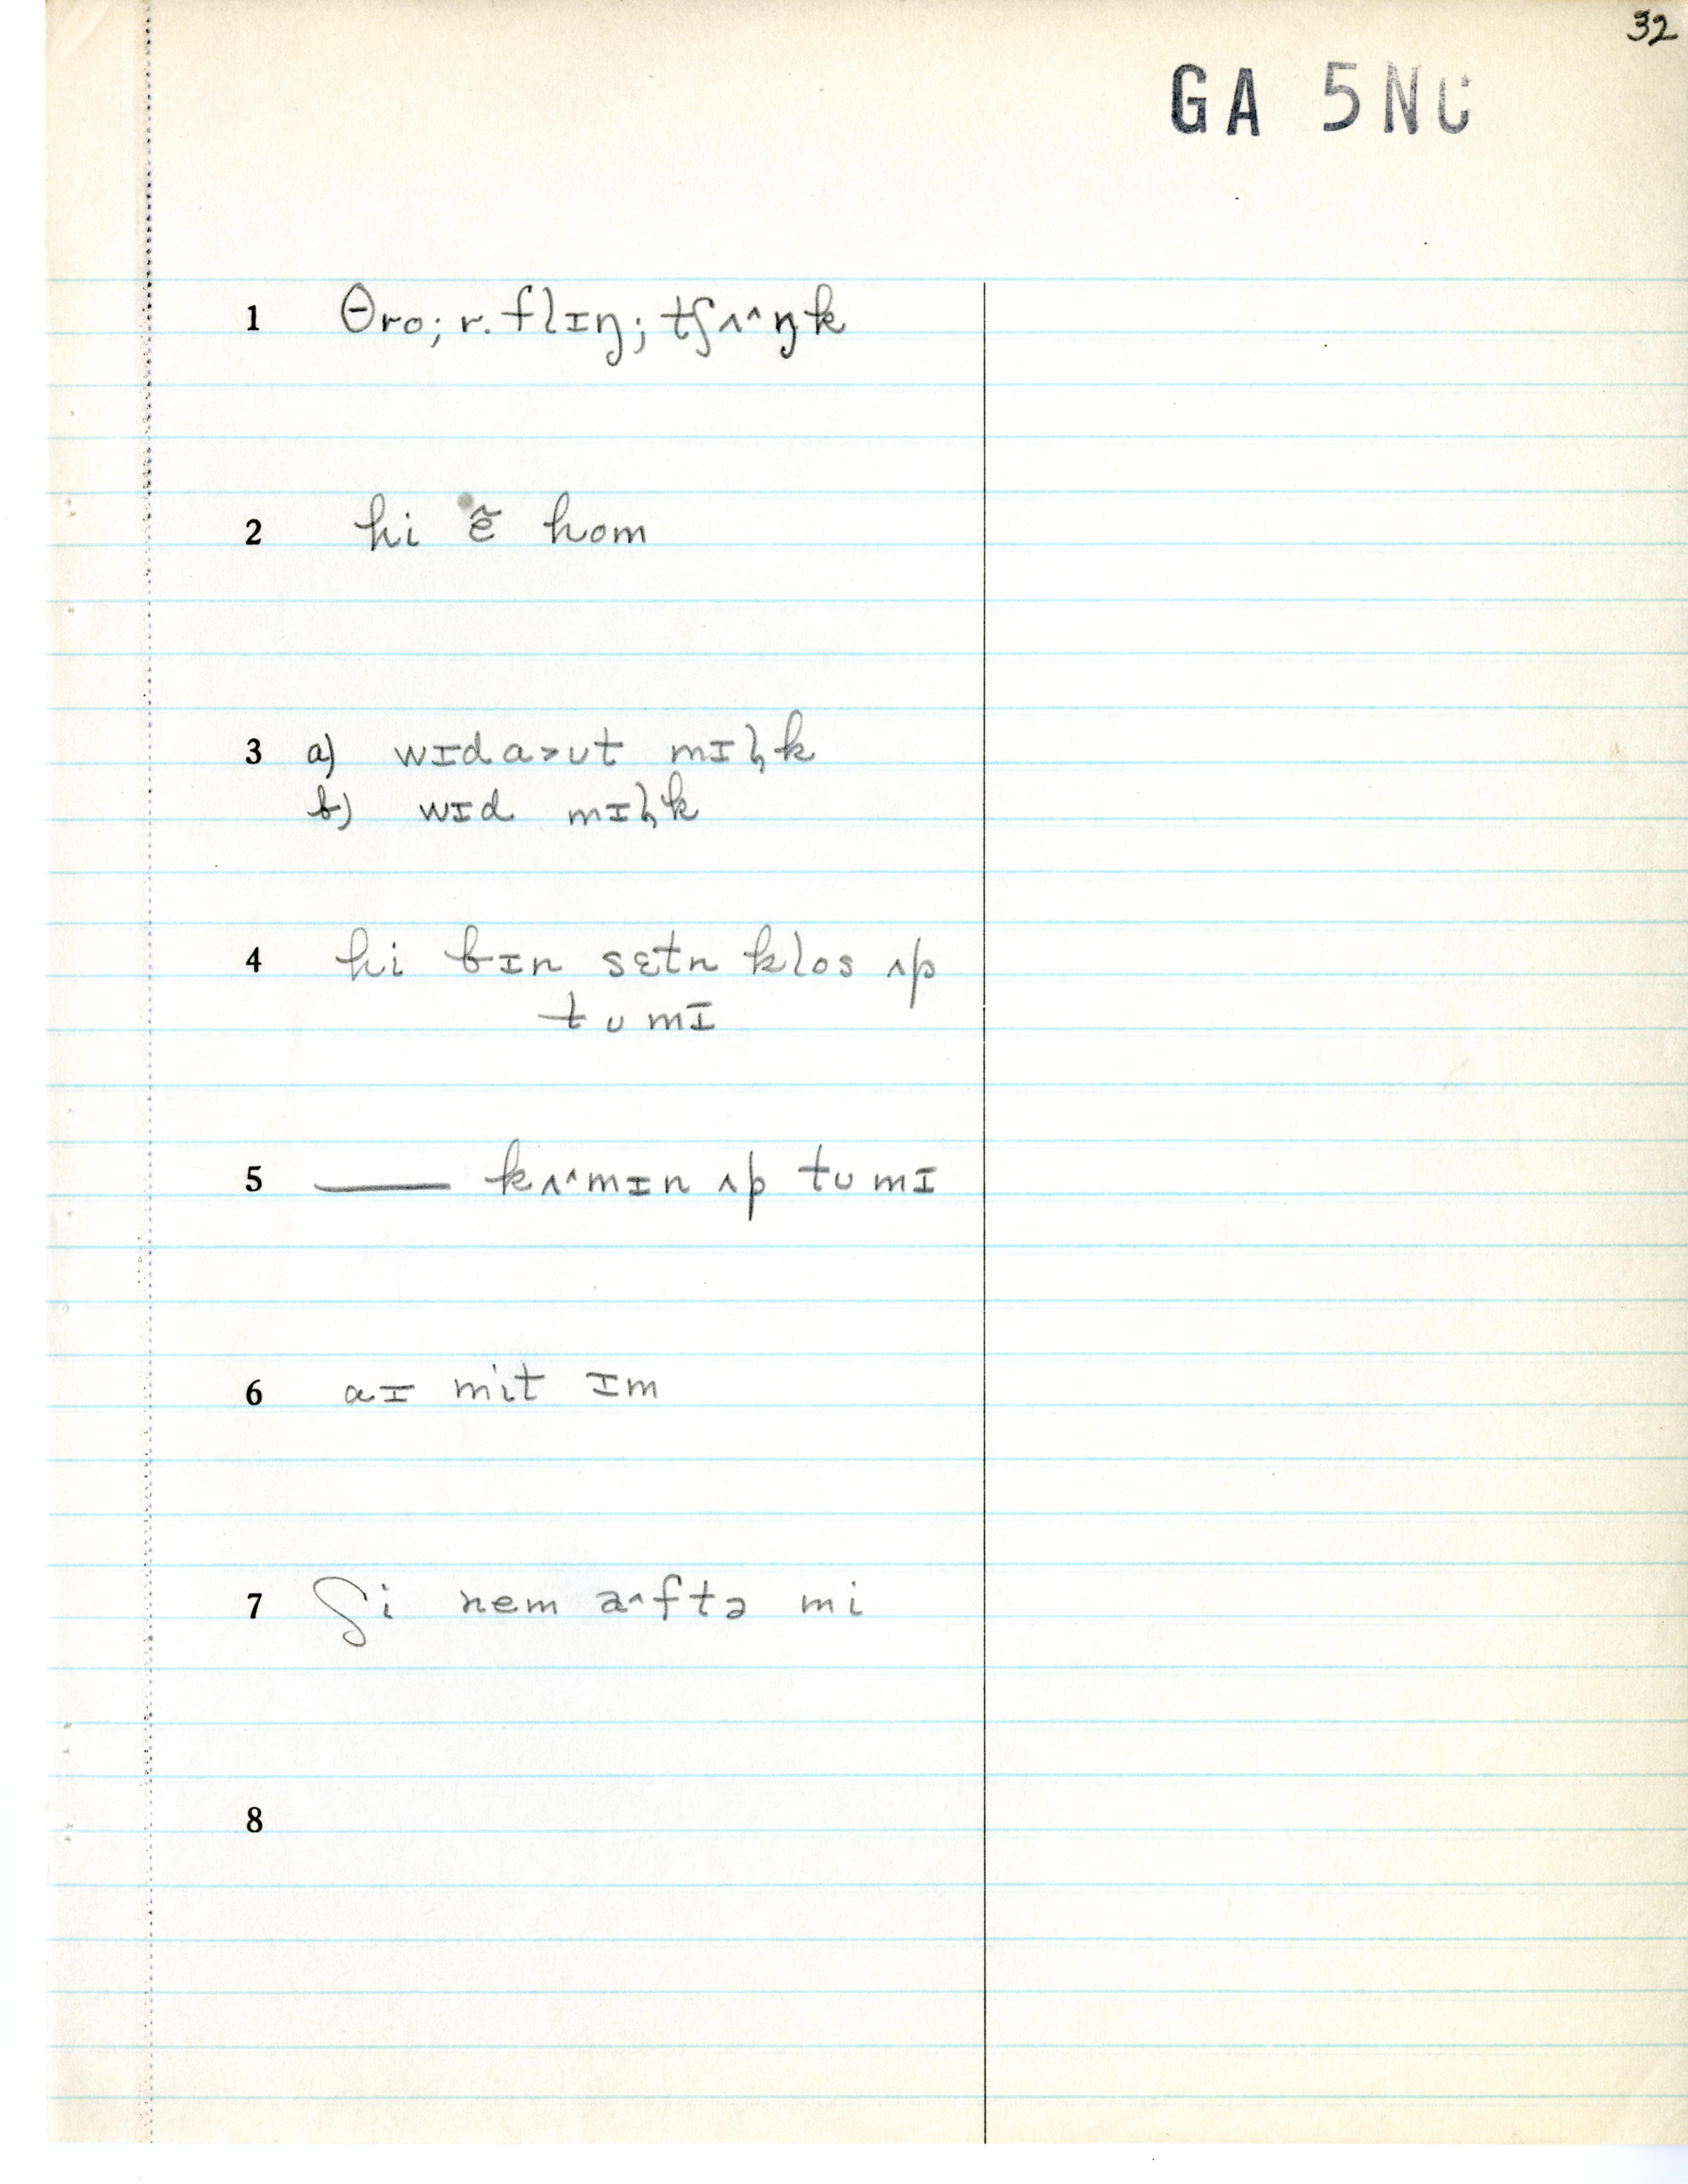 32
GA 5NC
1 θro; r. flɪŋ; tʃʌ^ŋk
2 hi ẽ hom
3 a) wɪda>ʊt mɪɫk
b) wɪd mɪɫk
4 hi bɪn sɛtn klos ʌp
tʊ mɪ
5 —— kʌ^mɪn ʌp tʊ mɪ
6 aɪ mit ɪm
7 ʃi nem a^ftə mi
8